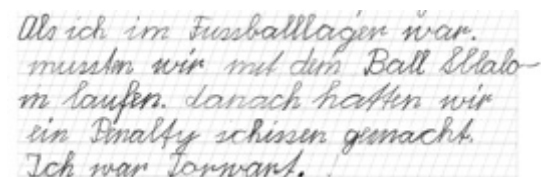 Als ich im Fussballlager war.
mussten wir mit dem Ball Sllalo-
m laufen. danach hatten wir
ein Penalty schissen gemacht.
Ich war Torwart.